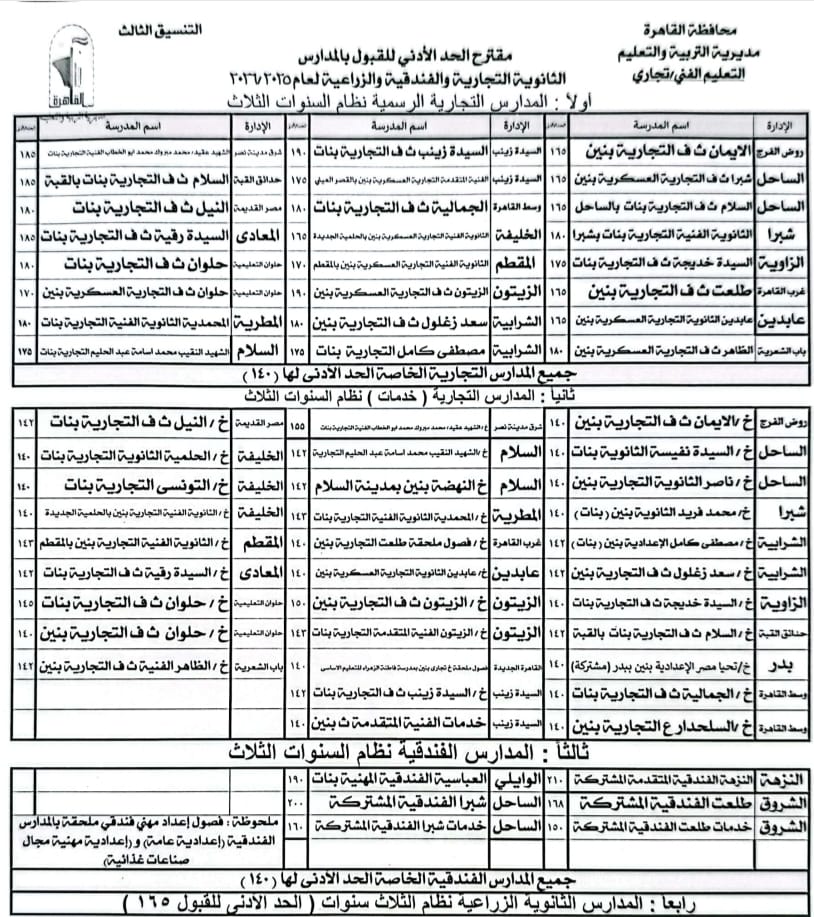 محافظة القاهرة
مديرية التربية والتعليم
التعليم الفني/تجاري
التنسيق الثالث
القاهرة
مقترح الحد الأدني للقبول بالمدارس
الثانوية التجارية والفندقية والزراعية لعام ٢٠٢٦/٢٠٢٥
أولاً : المدارس التجارية الرسمية نظام السنوات الثلاث
الإدارة اسم المدرسة الإدارة اسم المدرسة الإدارة اسم المدرسة
روض الفرج الايمان ث ف التجارية بنين ١٦٥ السيدة زينب السيدة زينب ث ف التجارية بنات ١٩٠ شرق مدينة نصر الشهيد عقيد/ محمد مبروك محمد ابو الخطاب الفنية التجارية بنات ١٨٥
الساحل شبرا ث ف التجارية العسكرية بنين ١٦٥ السيدة زينب الفنية المتقدمة التجارية العسكرية بنين بالقصر العيني ١٧٥ حدائق القبة السلام ث ف التجارية بنات بالقبة ١٨٥
الساحل السلام ث ف التجارية بنات بالساحل ١٦٥ وسط القاهرة الجمالية ث ف التجارية بنات ١٨٠ مصر القديمة النيل ث ف التجارية بنات ١٨٠
شبرا الثانوية الفنية التجارية بنات بشبرا ١٨٠ الخليفة الثانوية الفنية التجارية العسكرية بنين بالحلمية الجديدة ١٦٥ المعادى السيدة رقية ث ف التجارية بنات ١٨٥
الزاوية السيدة خديجة ث ف التجارية بنات ١٧٥ المقطم الثانوية الفنية التجارية العسكرية بنين بالمقطم ١٧٠ حلوان التعليمية حلوان ث ف التجارية بنات ١٨٠
غرب القاهرة طلعت ث ف التجارية بنين ١٦٥ الزيتون الزيتون ث ف التجارية العسكرية بنين ١٩٠ حلوان التعليمية حلوان ث ف التجارية العسكرية بنين ١٧٠
عابدين عابدين الثانوية التجارية العسكرية بنين ١٦٥ الشرابية سعد زغلول ث ف التجارية العسكرية بنين ١٨٠ المطرية المحمدية الثانوية الفنية التجارية بنات ١٨٠
باب الشعرية الظاهر ث ف التجارية العسكرية بنين ١٨٠ الشرابية مصطفى كامل التجارية بنات ١٧٥ السلام الشهيد النقيب محمد اسامة عبد الحليم التجارية بنات ١٧٥
جميع المدارس التجارية الخاصة الحد الادنى لها (١٤٠)
ثانياً : المدارس التجارية ( خدمات ) نظام السنوات الثلاث
روض الفرج خ /الايمان ث ف التجارية بنين ١٤٠ شرق مدينة نصر خ / الشهيد عقيد/ محمد مبروك محمد ابو الخطاب الفنية التجارية بنات ١٥٥ مصر القديمة خ / النيل ث ف التجارية بنات ١٤٢
الساحل خ / السيدة نفيسة الثانوية بنات ١٤٠ السلام خ /الشهيد النقيب محمد اسامة عبد الحليم التجارية ١٤٢ الخليفة خ / الحلمية الثانوية التجارية بنات ١٤٠
الساحل خ / ناصر الثانوية التجارية بنين ١٤٠ السلام خ النهضة بنين بمدينة السلام ١٤٢ الخليفة خ / التونسى التجارية بنات ١٤٠
شبرا خ / محمد فريد الثانوية بنين (بنات) ١٤٠ المطرية خ / المحمدية الثانوية الفنية التجارية بنات ١٤٣ الخليفة خ / الثانوية الفنية التجارية بنين بالحلمية الجديدة ١٤٠
الشرابية خ / مصطفى كامل الإعدادية بنين (بنات) ١٤٢ غرب القاهرة خ / فصول ملحقة طلعت التجارية بنين ١٤٠ المقطم خ / الثانوية الفنية التجارية بنين بالمقطم ١٤٣
الشرابية خ / سعد زغلول ث ف التجارية بنين ١٤٢ عابدين خ /عابدين الثانوية التجارية العسكرية بنين ١٤٠ المعادى خ / السيدة رقية ث ف التجارية بنات ١٤٢
الزاوية خ / السيدة خديجة ث ف التجارية بنات ١٤٠ الزيتون خ / الزيتون ث ف التجارية بنين ١٥٠ حلوان التعليمية خ / حلوان ث ف التجارية بنات ١٤٥
حدائق القبة خ / السلام ث ف التجارية بنات بالقبة ١٤٢ الزيتون خ / الزيتون الفنية المتقدمة التجارية بنات ١٤٣ حلوان التعليمية خ / حلوان ث ف التجارية بنين ١٤٠
بدر خ /تحيا مصر الإعدادية بنين ببدر (مشتركة) ١٤٠ القاهرة الجديدة فصول ملحقة خ تجارى بنين بمدرسة فاطمة الزهراء للتعليم الاساسى ١٤٠ باب الشعرية خ / الظاهر الفنية ث ف التجارية بنين ١٤٢
وسط القاهرة خ / الجمالية ث ف التجارية بنات ١٤٠ السيدة زينب خ / السيدة زينب ث ف التجارية بنات ١٤٢
وسط القاهرة خ / السلحدار ع التجارية بنين ١٤٠ السيدة زينب خدمات الفنية المتقدمة ث بنين ١٤٠
ثالثاً : المدارس الفندقية نظام السنوات الثلاث
النزهة النزهة الفندقية المتقدمة المشتركة ٢١٠ الوايلي العباسية الفندقية المهنية بنات ١٩٠
الشروق طلعت الفندقية المشتركة ١٦٨ الساحل شبرا الفندقية المشتركة ٢٠٠
الشروق خدمات طلعت الفندقية المشتركة ١٥٠ الساحل خدمات شبرا الفندقية المشتركة ١٦٠
ملحوظة : فصول إعداد مهني فندقي ملحقة بالمدارس
الفندقية (إعدادية عامة) و (إعدادية مهنية مجال
صناعات غذائية)
جميع المدارس الفندقية الخاصة الحد الأدنى لها (١٤٠)
رابعا : المدارس الثانوية الزراعية نظام الثلاث سنوات ( الحد الأدنى للقبول ١٦٥ )